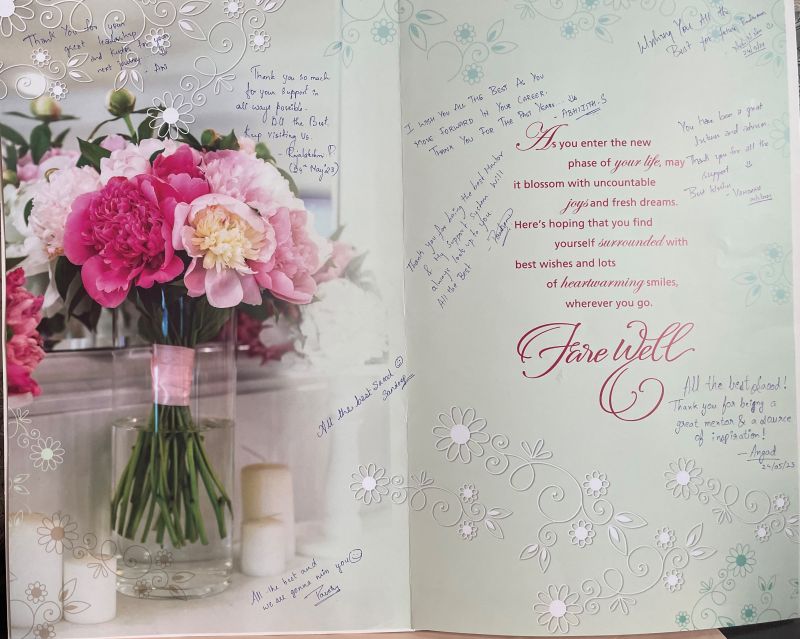 Thank You for your
great leadership
and kudos to your
next journey.
- Ani
Thank you so much
for your support in
all ways possible.
All the Best.
Keep visiting Us.
- Rajalakshmi P.
(24th May'23)
All the best Sarad ☺
Sandeep
All the best and
we all gonna miss you ☺
Wishing You All the
Best for future
24/5/23
I WISH YOU ALL THE BEST AS YOU
MOVE FORWARD IN YOUR CAREER.
THANK YOU FOR THE PAST YEARS
- ABHIJITH.S
You have been a great
and
Thank you for all the
support ☺
Best Wishes
- Vandana
Thank you for being the best Mentor
& My Support System Will
always look up to you
All the Best
As you enter the new
phase of your life, may
it blossom with uncountable
joys and fresh dreams.
Here's hoping that you find
yourself surrounded with
best wishes and lots
of heartwarming smiles,
wherever you go.
Fare Well
All the best Sarad!
Thank you for being a
great mentor & a source
of inspiration!
- Angad
24/05/23